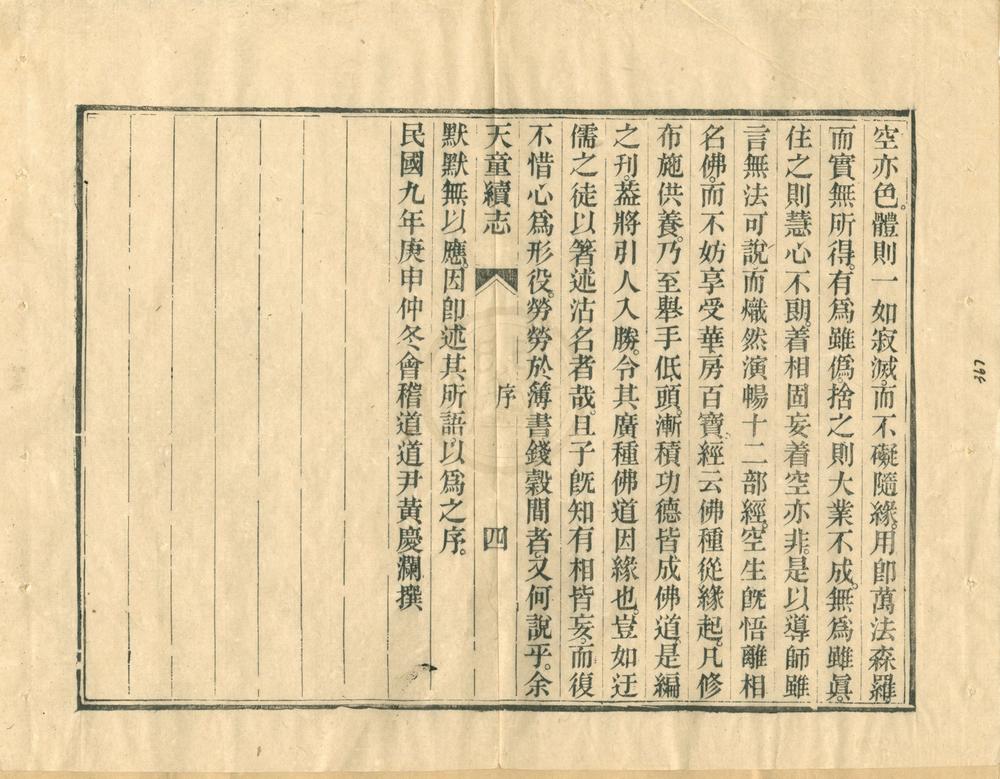 空亦色。體則一如寂滅。而不礙隨緣。用卽萬法森羅。
而實無所得。有爲雖僞捨之則大業不成。無爲雖眞。
住之則慧心不朗。着相固妄着空亦非。是以導師雖
言無法可說而熾然演暢十二部經。空生旣悟離相
名佛。而不妨享受華房百寶。經云佛種從緣起。凡修
布施供養。乃至舉手低頭。漸積功德皆成佛道。是編
之刊。葢將引人入勝。令其廣種佛道因緣也。豈如迂
儒之徒以箸述沽名者哉。且子旣知有相皆妄。而復
不惜心爲形役。勞勞於簿書錢穀間者。又何說乎。余
天童續志 序 四
默默無以應。因卽述其所語。以爲之序。
民國九年庚申仲冬會稽道道尹黃慶瀾撰
697